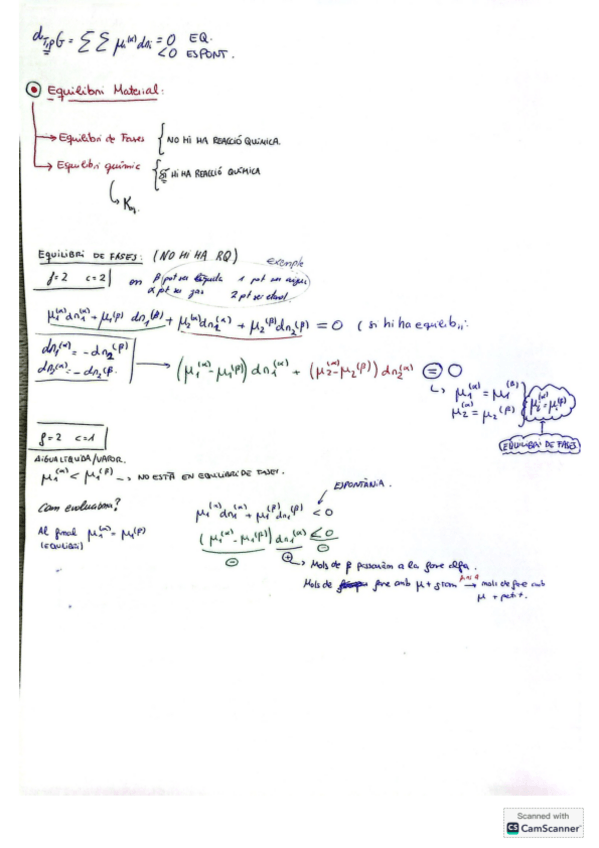 d_T,P G = ΣΣ μi^(α) dni = 0 EQ.
< 0 ESPONT.
Equilibri Material:
→ Equilibri de Fases { NO HI HA REACCIÓ QUÍMICA.
→ Equilibri químic { SÍ HI HA REACCIÓ QUÍMICA
EQUILIBRI DE FASES: (NO HI HA RQ)
exemple
f=2 c=2 on β pot ser líquida 1 pot ser aigua
α pot ser gas 2 pot ser etanol.
μ1^(α) dn1^(α) + μ1^(β) dn1^(β) + μ2^(α) dn2^(α) + μ2^(β) dn2^(β) = 0 (si hi ha equilib
dn1^(α) = - dn2^(β)
dn2^(α) = - dn2^(β) → (μ1^(α) - μ1^(β)) dn1^(α) + (μ2^(α) - μ2^(β)) dn2^(α) = 0
↳ μ1^(α) = μ1^(β)
μ2^(α) = μ2^(β)
EQUILIBRI DE FASES
f=2 c=1
AIGUA LÍQUIDA/VAPOR.
μ1^(α) < μ1^(β) → NO ESTÀ EN EQUILIBRI DE FASES.
ESPONTÀNIA.
Com evoluciona?
μ1^(α) dn1^(α) + μ1^(β) dn1^(β) < 0
Al final μ1^(α) = μ1^(β)
(EQUILIBRI)
(μ1^(α) - μ1^(β)) dn1^(α) ≤ 0
⊖ ⊕ ⊖
↳ Mols de β passaràn a la fase alfa.
Mols de fase amb μ + gran → mols de fase amb
μ + petit.
Scanned with
CS CamScanner